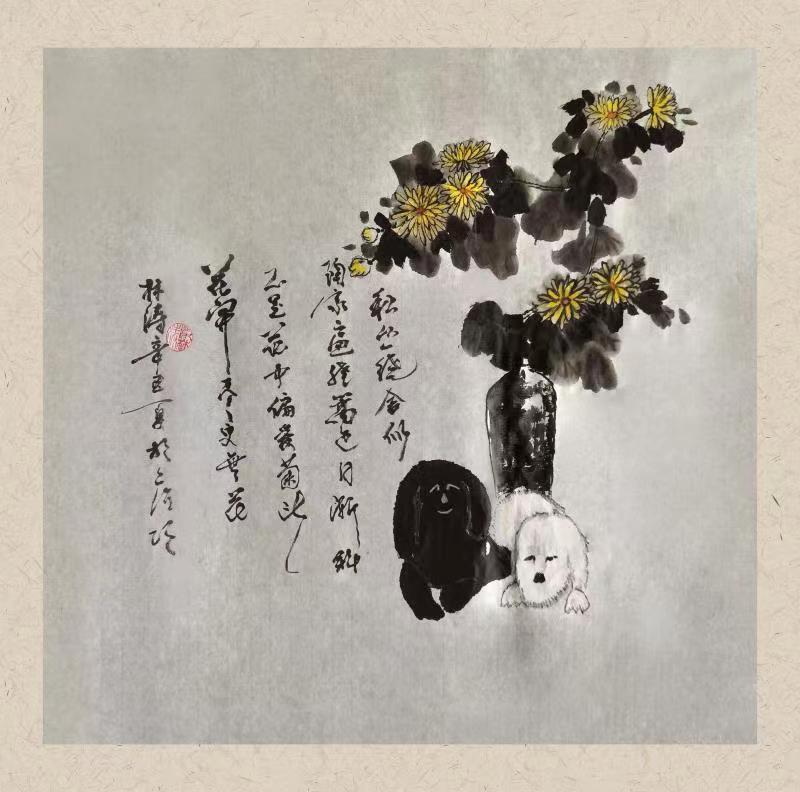 秋丛绕舍似
陶家遍绕篱边日渐斜
不是花中偏爱菊此
花開尽更無花
林涛辛丑夏於上